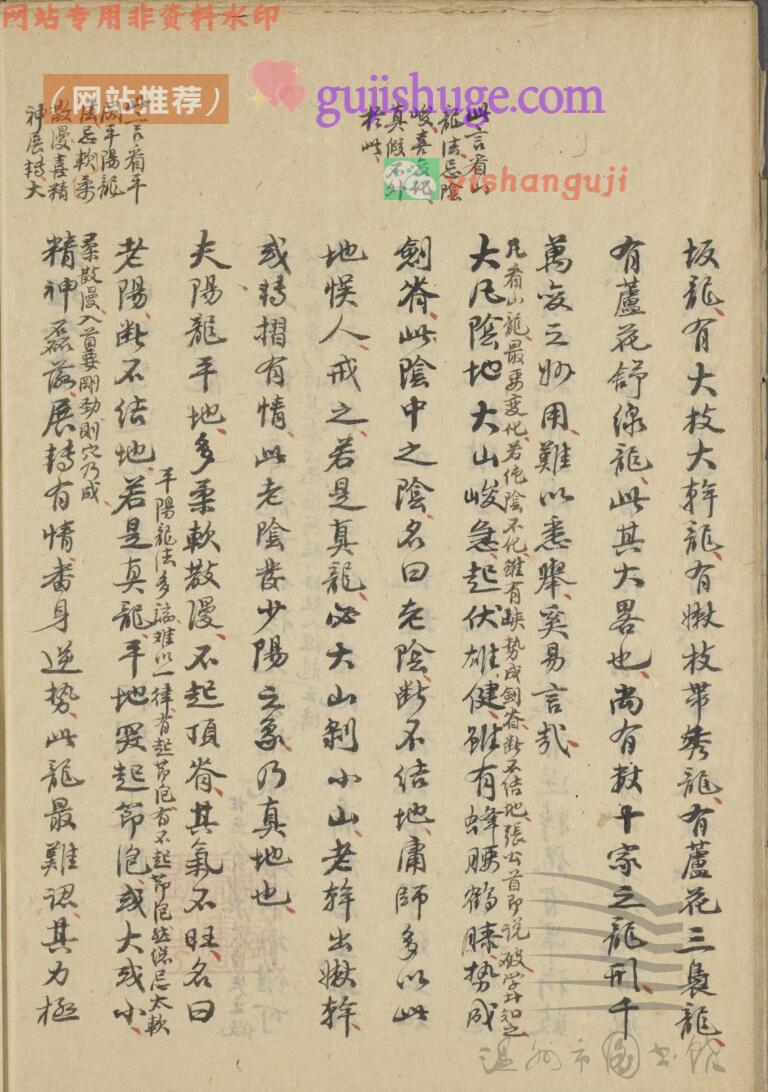 网站专用非资料水印
（网站推荐）
gujishuge.com
yishanguji
此言看山
龍法忌陰
峻喜变化
真假不外
於此
此言看平
陽龍
法忌軟柔
散漫喜精
神展轉大
坂龍、有大枝大幹龍、有嫩枝带秀龍、有蘆花三裊龍、
有蘆花舒線龍、此其大畧也、尚有数十家之龍形、千
萬变之妙用、難以悉舉、奚易言哉
凡看山龍、最要变化、若純陰不化、雖有缺势成劍脊、断不结地、張公首即説破、学者知之
大凡陰地、大山峻急、起伏雄健、雖有蜂腰鶴膝、势成
劍脊、此陰中之陰、名曰老陰、断不结地、庸師多以此
地悮人、戒之、若是真龍、必大山剝小山、老幹出嫩幹、
或轉摺有情、此老陰變少陽之象、乃真地也、
夫陽龍平地、多柔軟散漫、不起頂脊、其氣不旺、名曰
平陽龍法多端、难以一律、有起節泡、有不起節泡、然總忌太軟
老陽、断不结地、若是真龍、平地突起節泡、或大或小、
柔散漫、入首要剛劲、則穴乃成
精神磊落、展轉有情、番身逆势、此龍最難認、其力極
温州市图书館